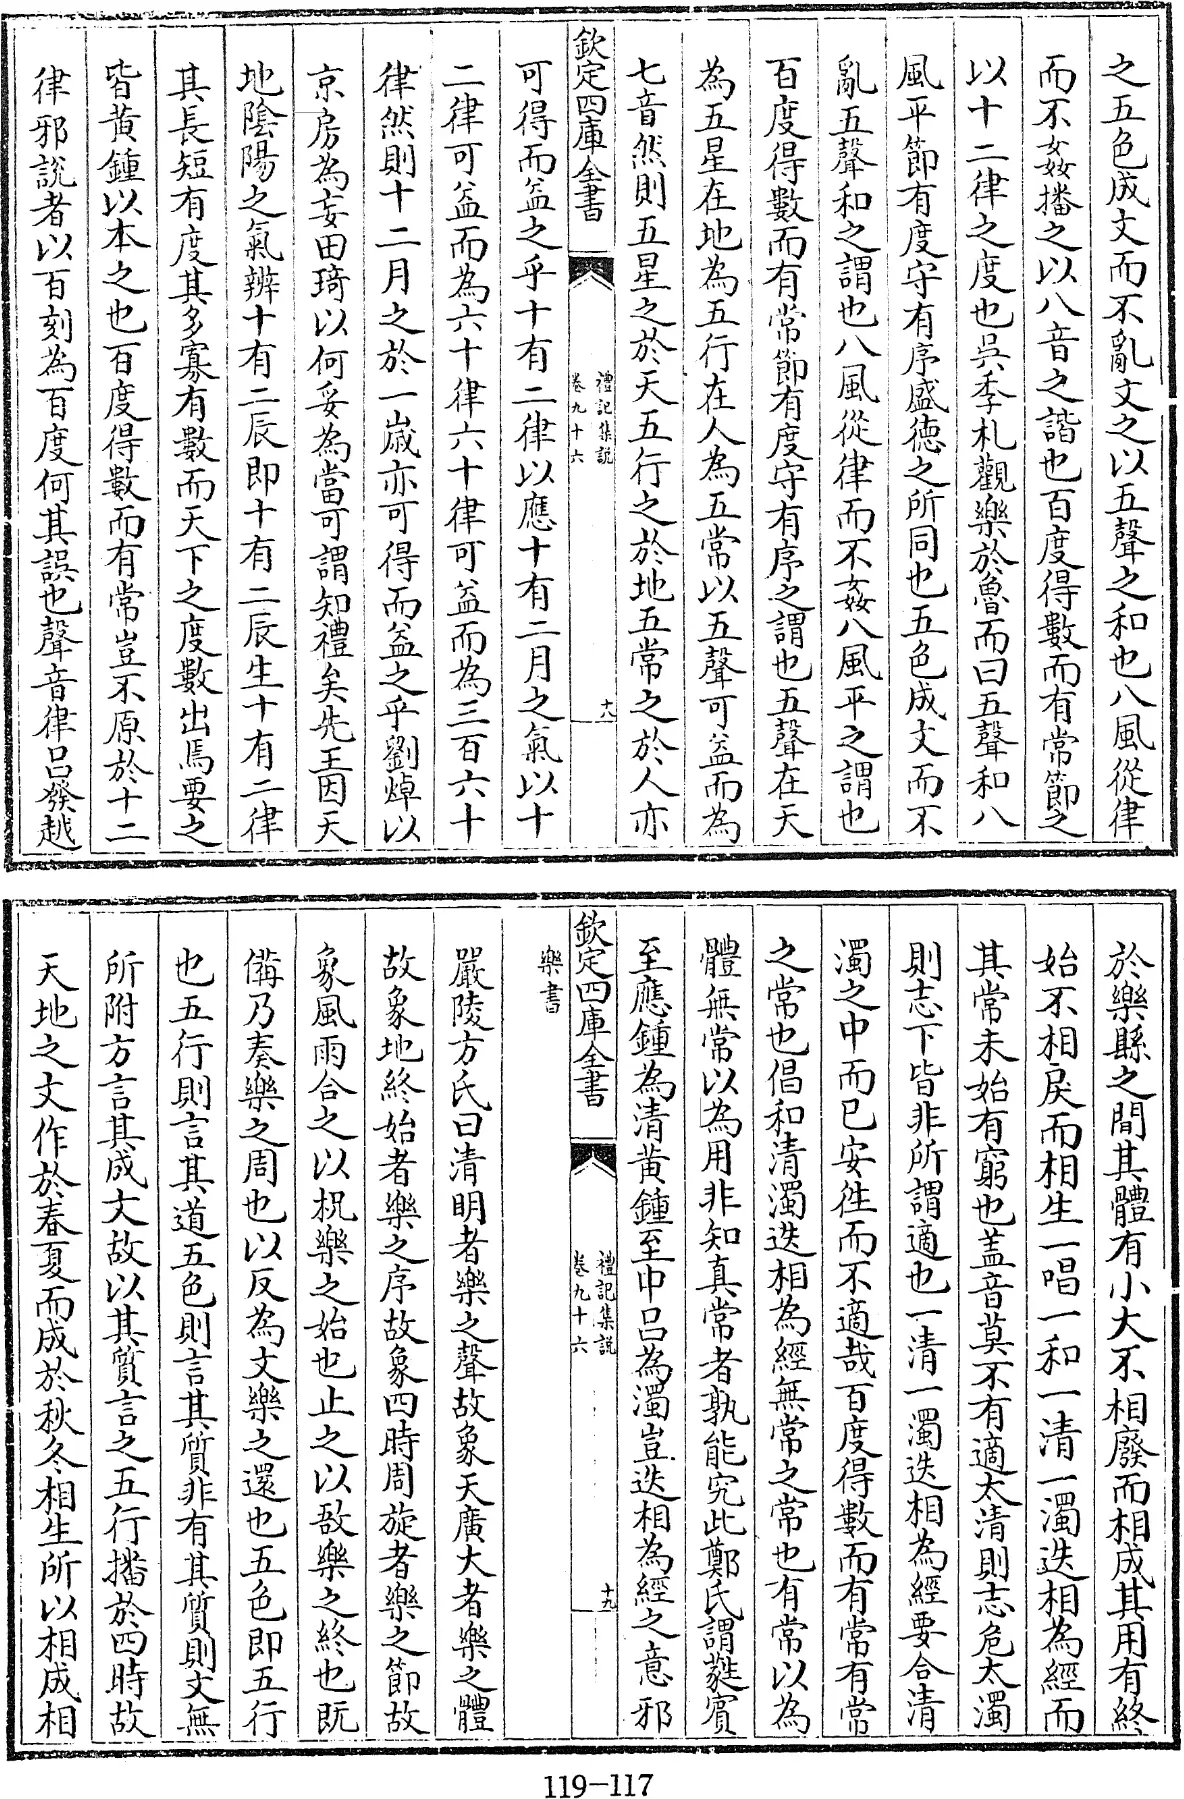 之五色成文而不亂文之以五聲之和也八風從律
而不姦播之以八音之諧也百度得數而有常節之
以十二律之度也吳季札觀樂於魯而曰五聲和八
風平節有度守有序盛德之所同也五色成文而不
亂五聲和之謂也八風從律而不姦八風平之謂也
百度得數而有常節有度守有序之謂也五聲在天
為五星在地為五行在人為五常以五聲可益而為
七音然則五星之於天五行之於地五常之於人亦
欽定四庫全書
禮記集說
卷九十六
十八
可得而益之乎十有二律以應十有二月之氣以十
二律可益而為六十律六十律可益而為三百六十
律然則十二月之於一歲亦可得而益之乎劉焯以
京房為妄田琦以何妥為當可謂知禮矣先王因天
地陰陽之氣辨十有二辰即十有二辰生十有二律
其長短有度其多寡有數而天下之度數出焉要之
皆黃鍾以本之也百度得數而有常豈不原於十二
律邪說者以百刻為百度何其誤也聲音律呂發越
於樂縣之間其體有小大不相廢而相成其用有終
始不相戾而相生一唱一和一清一濁迭相為經而
其常未始有窮也蓋音莫不有適太清則志危太濁
則志下皆非所謂適也一清一濁迭相為經要合清
濁之中而已安徃而不適哉百度得數而有常有常
之常也倡和清濁迭相為經無常之常也有常以為
體無常以為用非知真常者孰能究此鄭氏謂蕤賓
至應鍾為清黃鍾至中呂為濁豈迭相為經之意邪
欽定四庫全書
禮記集說
卷九十六
十九
樂書
嚴陵方氏曰清明者樂之聲故象天廣大者樂之體
故象地終始者樂之序故象四時周旋者樂之節故
象風雨合之以柷樂之始也止之以敔樂之終也既
備乃奏樂之周也以反為文樂之還也五色即五行
也五行則言其道五色則言其質非有其質則文無
所附方言其成文故以其質言之五行播於四時故
天地之文作於春夏而成於秋冬相生所以相成相
119-117